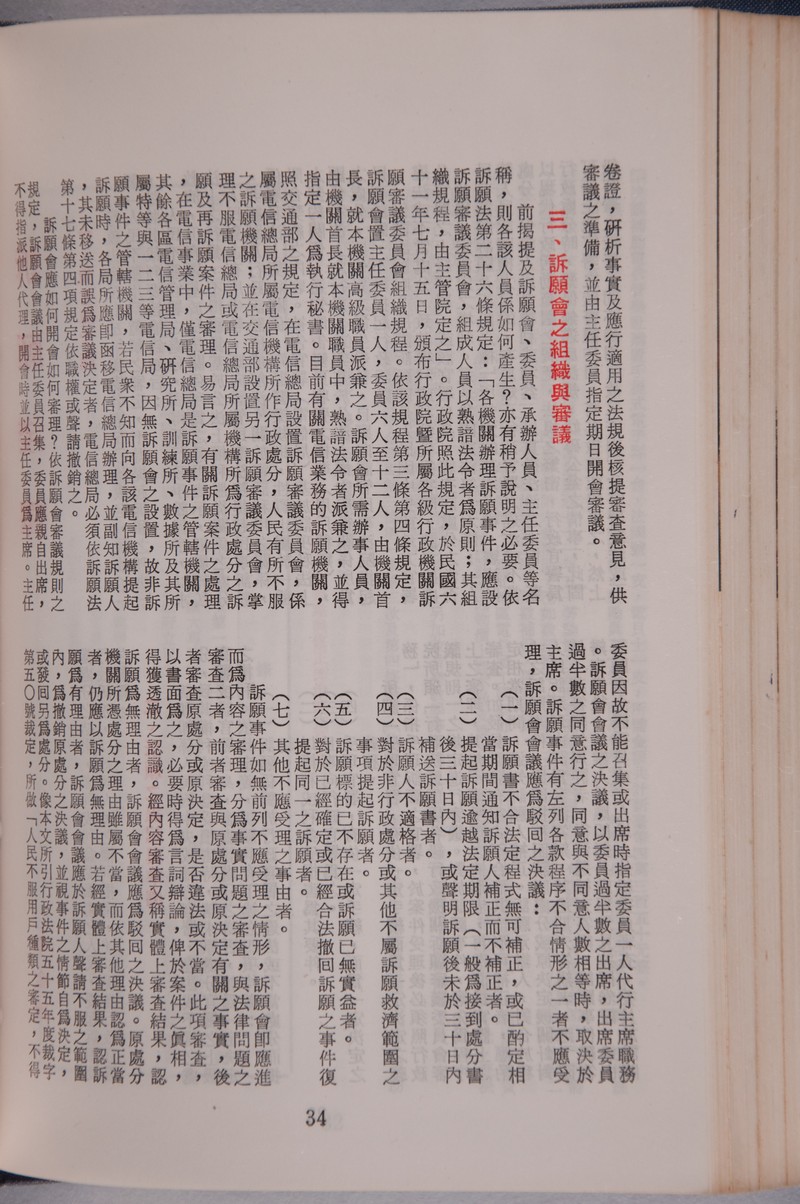 卷證，硏析事實及應行適用之法規後核提審查意見，供
審議之準備，並由主任委員指定期日開會審議。
三、訴願會之組織與審議
前揭提及訴願會、委員、承辦人員、主任委員等名
稱，則各該人員係如何產生？亦有稍予說明之必要。依
訴願法第二十六條規定：「各機關辦理訴願事件，應設
訴願審議委員會，組成人員以熟諳法令者爲原則；其組
織規程，由主管院定之」。行政院照此規定，於民國六
十一年七月十五日，頒布行政院暨所屬各級行政機關訴
願審議委員會組織規程。依該規程第三條第四條規定，
訴願會置主任委員一人，委員六人至十二人，由機關首
長，就本機關高級職員派兼之。訴願會所需辦事人員，
由機關首長就本機關職員中，熟諳法令者派兼之，並得
指定一人爲執行秘書。目前有關電信業務的訴願機關，
照交通部之規定，在電信總局設置訴願審議委員會，係
屬電信總局所屬電信機構所作行政處分，人民有所不服
之訴願機關；並在交通部設置另一訴願審議委員會，掌
理不服電信總局或電信總局所屬機構所爲行政處分之訴
願及再訴願案件之審理。易言之，有關訴願案件之處理
，在電信事業中，僅電信總局是訴願事件之管轄機關，
其餘各區電信管理局、硏究所、訓練所、數據所及其所
屬特等與一二三等電信局，因無訴願會之設置，故非訴
願事件之管轄機關，若民衆不知而向各該電信機構提起
訴願時，各局所應卽函移電信總局辦理，並副知訴願人
，其未移送而誤爲審議決定者，電信總局必須依訴願法
第十七條第四項規定依職權或聲請撤銷之。
訴願會應如何開會如何審理？依訴願會審議規則之
規定，訴願會會議由主任委員召集，委員應親自出席，
不得指派他人代理，開會時並以主任委員爲主席。主任
委員因故不能召集或出席時指定委員一人代行主席職務
。訴願會會議之決議，以委員過半數之出席，出席委員
過半數之同意行之，同意與不同意人數相等時，取決於
主席。訴願事件有左列各款程序不合情形之一者不應受
理，訴願會會議應爲駁回之決議：
（一）訴願書不合法定程式無可補正，或已酌定相
當期間通知訴願人補正而不補正者。
（二）提起訴願逾越法定期限（一般爲接到處分書
後三十日內），或聲明訴願後未於三十日內
補送訴願書者。
（三）訴願人不適格者。
（四）對於非行政處分或其他不屬訴願救濟範圍之
事項提起訴願者。
（五）訴願標的已不存在或訴願已無實益者。
（六）對於已經確定或已經合法撤回訴願之事件復
提起同一之訴願者。
（七）其他不應受理之事由者。
訴願事件如無前列不應受理之情形，訴願會卽應進
而爲內容之審理，分爲事實問題之審查，與法律問題之
審查二者，前者審查與原處分或原決定有關之事實，後
者審查原處分或原決定，是否違法或不當。此項審查，
以書面爲之，必要時得爲言詞辯論，俾於案件之眞相，
得獲透澈之認識。經內容審查又稱實體上審查結果，認
訴願爲無理由者，訴願會會議應爲駁回之決議。原處分
機關所憑處分之理由雖屬不當，而依其他理由認爲正當
者，仍應以訴願爲無理由。若經實體上審查結果，認訴
願爲有理由者，訴願會會議應於訴願人聲請不服之範圍
內，爲撤銷原處分之決議，並視事件之情節自爲決定，
或發回另爲處分。像本文所引行政法院五十五年度裁字
第五〇號裁定，所做「人民不服用戶種類之審定，不得
34